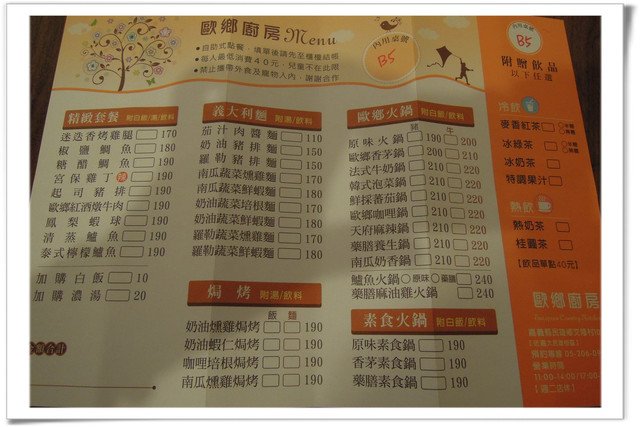 歐鄉廚房 Menu
•自助式點餐，填單後請先至櫃檯結帳
•每人最低消費40元，兒童不在此限
•禁止攜帶外食及寵物入內，謝謝合作
內用桌號
B5
精緻套餐 附白飯/湯/飲料
迷迭香烤雞腿 170
椒鹽鯛魚 180
糖醋鯛魚 190
宮保雞丁 辣 190
起司豬排 190
歐鄉紅酒燉牛肉 190
鳳梨蝦球 190
清蒸鱸魚 190
泰式檸檬鱸魚 190
加購白飯 10
加購濃湯 20
合計
義大利麵 附湯/飲料
茄汁肉醬麵 110
奶油豬排麵 150
羅勒豬排麵 150
南瓜蔬菜燻雞麵 170
南瓜蔬菜鮮蝦麵 180
奶油蔬菜培根麵 170
奶油蔬菜鮮蝦麵 180
羅勒蔬菜燻雞麵 170
羅勒蔬菜鮮蝦麵 180
焗烤 附湯/飲料
飯 麵
奶油燻雞焗烤 190
奶油蝦仁焗烤 190
咖哩培根焗烤 190
南瓜燻雞焗烤 190
歐鄉火鍋 附白飯/飲料
豬 牛
原味火鍋 190 200
歐鄉香茅鍋 200 210
法式牛奶鍋 210 220
韓式泡菜鍋 210 220
鮮採蕃茄鍋 210 220
歐鄉咖哩鍋 210 220
天府麻辣鍋 210 220
藥膳養生鍋 210 220
南瓜奶香鍋 210 220
鱸魚火鍋 ○原味 ○藥膳 240
藥膳麻油雞火鍋 240
素食火鍋 附白飯/飲料
原味素食鍋 190
香茅素食鍋 190
藥膳素食鍋 190
內用桌號
B5
附贈飲品
以下任選
冷飲
麥香紅茶
冰綠茶
冰奶茶
特調果汁
熱飲
熱奶茶
桂圓茶
【飲品單點40元】
歐鄉廚房
預約專線 05-206-09
營業時間
11:00-14:00/17:00-
【週二店休】